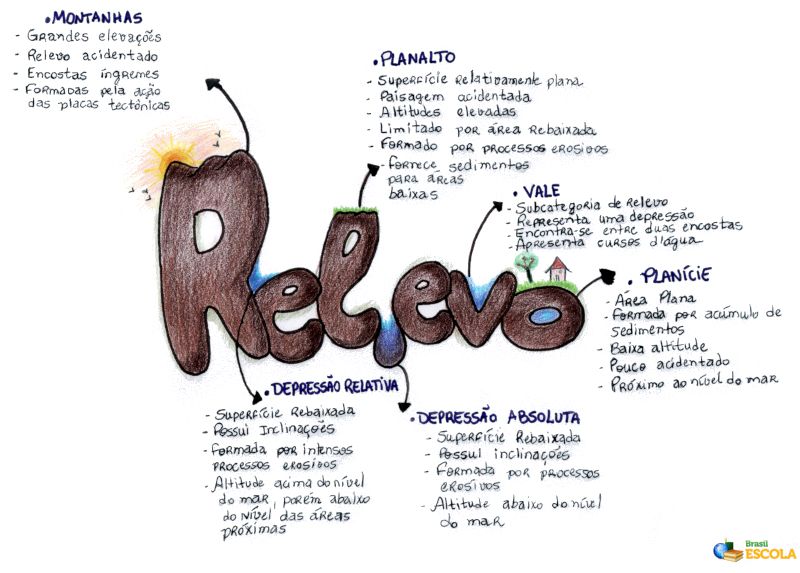 • MONTANHAS
- Grandes elevações
- Relevo acidentado
- Encostas íngremes
- Formadas pela ação
das placas tectônicas
• PLANALTO
- Superfície relativamente plana
- Paisagem acidentada
- Altitudes elevadas
- Limitado por área rebaixada
- Formado por processos erosivos
- Fornece sedimentos
para áreas
baixas
• VALE
- Subcategoria de relevo
- Representa uma depressão
- Encontra-se entre duas encostas
- Apresenta cursos d'água
Relevo
• PLANÍCIE
- Área Plana
- Formada por acúmulo de
sedimentos
- Baixa altitude
- Pouco acidentado
- Próximo ao nível do mar
• DEPRESSÃO RELATIVA
- Superfície Rebaixada
- Possui Inclinações
- Formada por intensos
processos erosivos
- Altitude acima do nível
do mar, porém abaixo
do nível das áreas
próximas
• DEPRESSÃO ABSOLUTA
- Superfície Rebaixada
- Possui inclinações
- Formada por processos
erosivos
- Altitude abaixo do nível
do mar
Brasil
ESCOLA